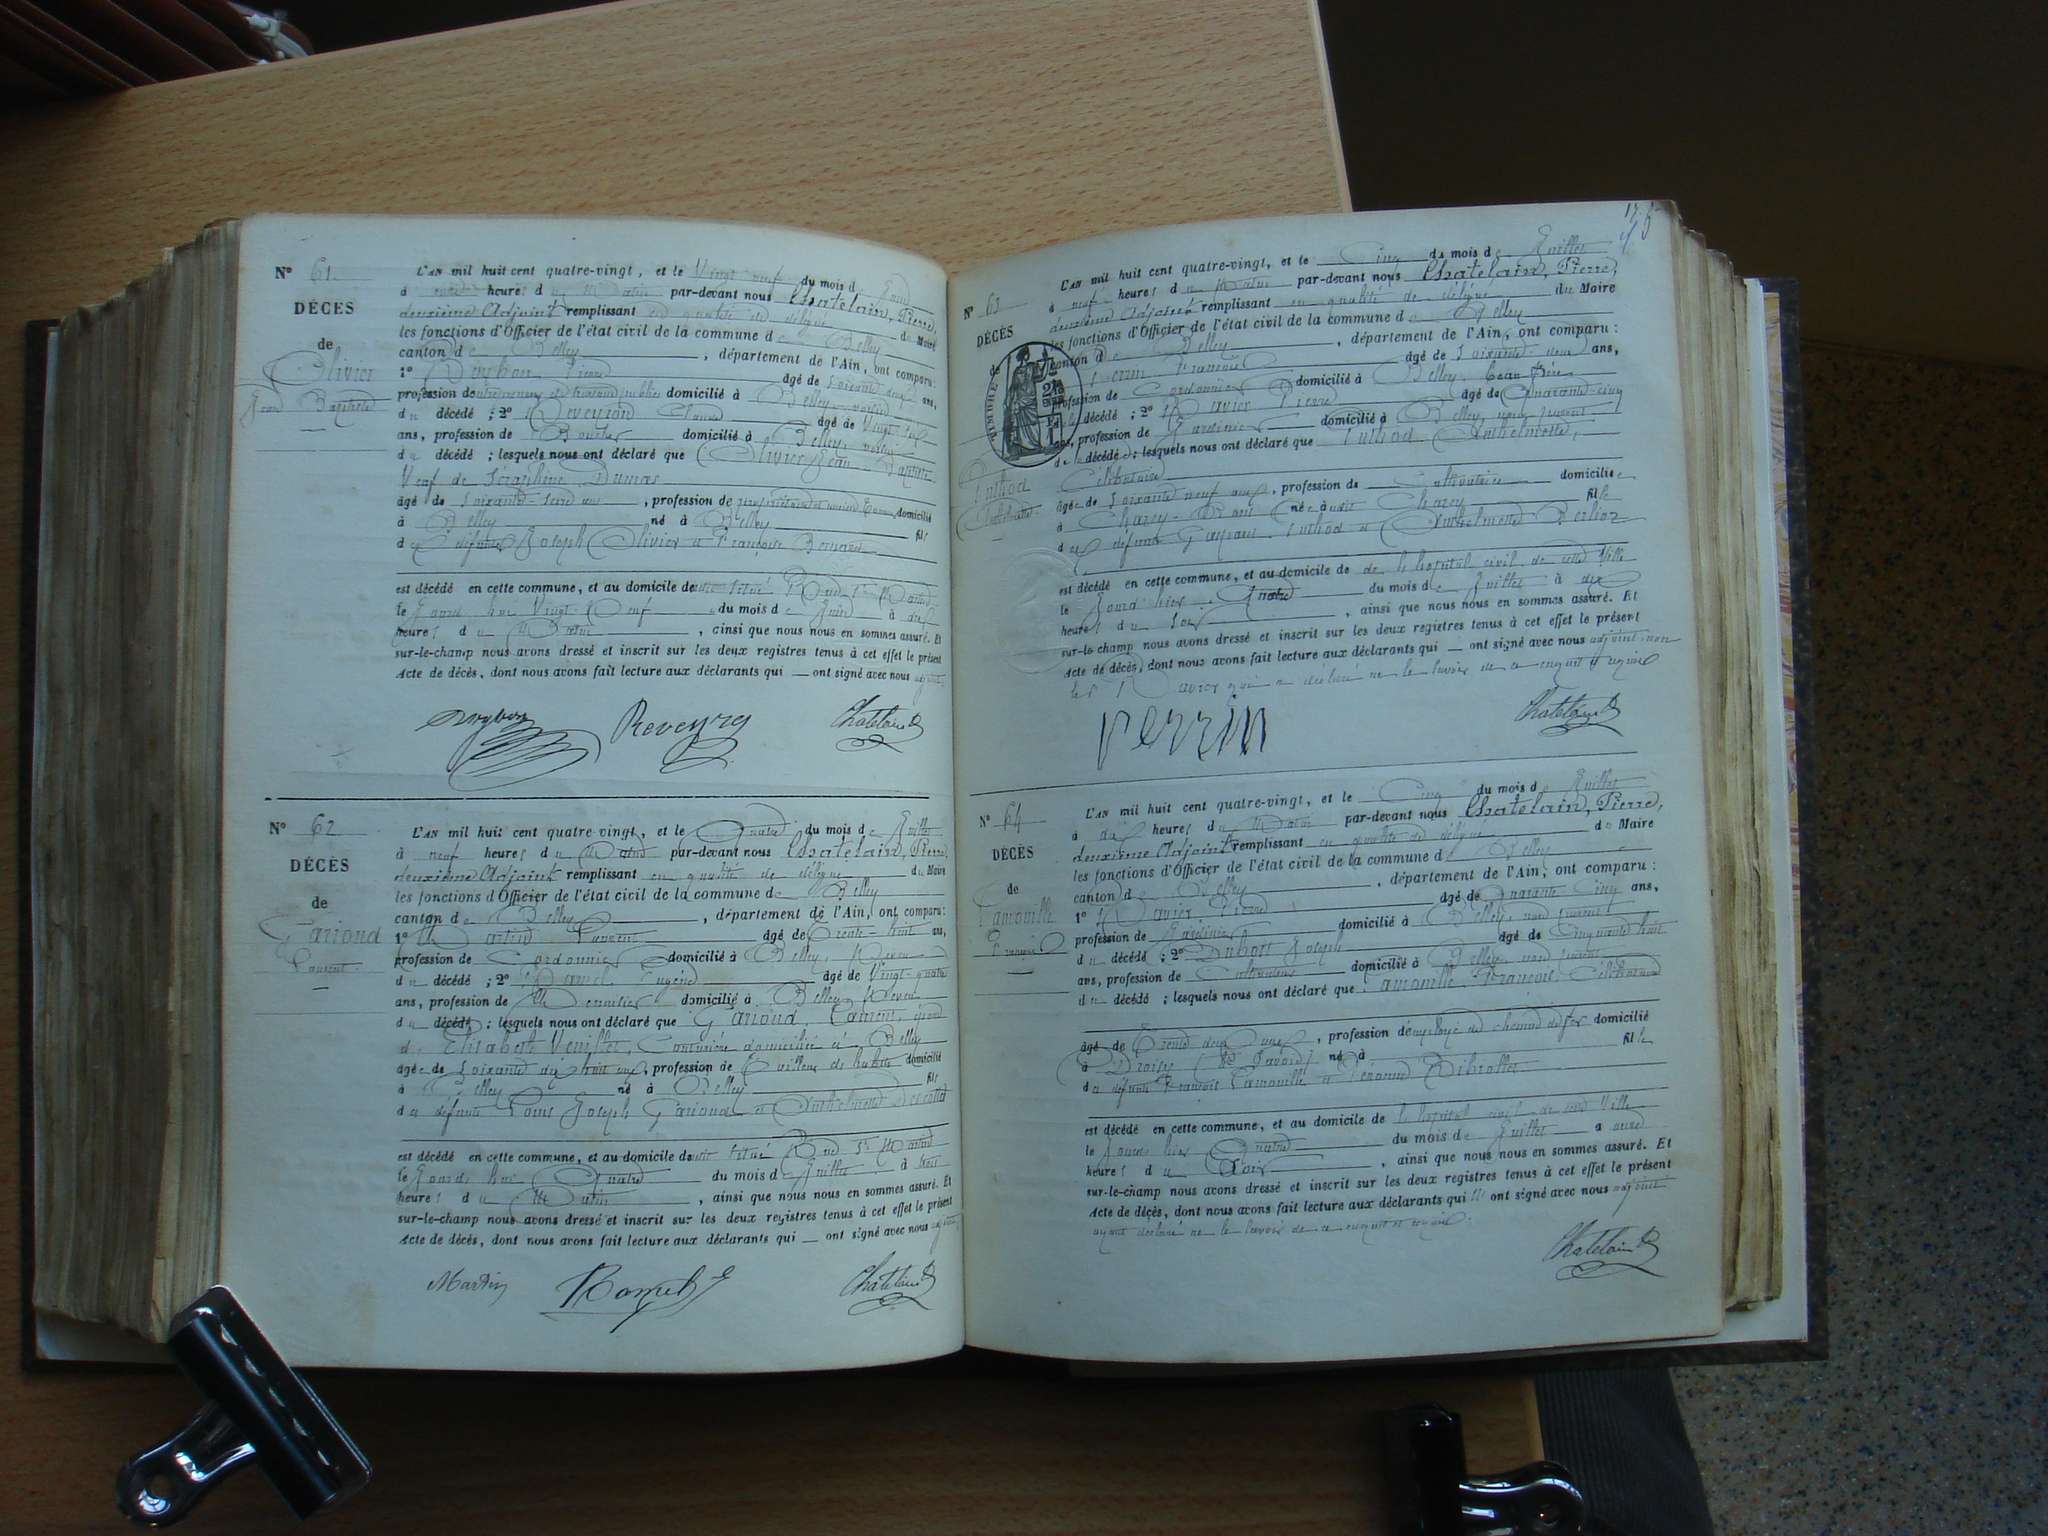 N° 61
DÉCÈS
de
Olivier
Jean Baptiste
L'AN mil huit cent quatre-vingt, et le Vingt neuf du mois de Juin
à heures du Matin par-devant nous Chatelain, Pierre,
deuxième Adjoint remplissant en qualité de délégué du Maire
les fonctions d'Officier de l'état civil de la commune de Belley
canton de Belley, département de l'Ain, ont comparu:
1° Pierre âgé de soixante deux ans,
profession de entrepreneur de travaux publics domicilié à Belley
du décédé; 2° Reveyron Claude âgé de Vingt
ans, profession de Boucher domicilié à Belley
du décédé; lesquels nous ont déclaré que Olivier Jean Baptiste
Veuf de Séraphine Dumas
âgé de soixante ans, profession de domicilié
à Belley né à Belley fils
des défunts Joseph Olivier et Françoise
est décédé en cette commune, et au domicile de situé Rue St Martin
le Jourd'hui Vingt-Neuf du mois de Juin à
heures du Matin, ainsi que nous nous en sommes assuré. Et
sur-le-champ nous avons dressé et inscrit sur les deux registres tenus à cet effet le présent
Acte de décès, dont nous avons fait lecture aux déclarants qui — ont signé avec nous adjoint.
Chatelain
N° 62
DÉCÈS
de
Garioud
Laurent
L'AN mil huit cent quatre-vingt, et le Quatre du mois de Juillet
à neuf heures du Matin par-devant nous Chatelain, Pierre,
deuxième Adjoint remplissant en qualité de délégué du Maire
les fonctions d'Officier de l'état civil de la commune de Belley
canton de Belley, département de l'Ain, ont comparu:
1° Martin Laurent âgé de trente-huit ans,
profession de Cordonnier domicilié à Belley, Neveu
du décédé; 2° Eugène âgé de Vingt-quatre
ans, profession de Menuisier domicilié à Belley, Neveu
du décédé; lesquels nous ont déclaré que Garioud Laurent, époux
d'Elisabeth Veuillet, Couturière domiciliée à Belley
âgé de soixante dix huit ans, profession de Tailleur de habits domicilié
à Belley né à Belley fils
des défunts Louis Joseph Garioud et Anthelmette
est décédé en cette commune, et au domicile de situé Rue St Martin
le Jourd'hui Quatre du mois de Juillet à trois
heures du Matin, ainsi que nous nous en sommes assuré. Et
sur-le-champ nous avons dressé et inscrit sur les deux registres tenus à cet effet le présent
Acte de décès, dont nous avons fait lecture aux déclarants qui — ont signé avec nous adjoint.
Martin
Chatelain
N° 63
DÉCÈS
de
Anthelmette
TIMBRE
L'AN mil huit cent quatre-vingt, et le Cinq du mois de Juillet
à neuf heures du Matin par-devant nous Chatelain, Pierre,
deuxième Adjoint remplissant en qualité de délégué du Maire
les fonctions d'Officier de l'état civil de la commune de Belley
canton de Belley, département de l'Ain, ont comparu:
Perrin François âgé de soixante-deux ans,
profession de Cordonnier domicilié à Belley, beau frère
décédé; 2° Pierre âgé de Quarante-cinq
ans, profession de Jardinier domicilié à Belley, non parent
du décédé; lesquels nous ont déclaré que Anthelmette,
Célibataire
âgée de soixante neuf ans, profession de Cultivatrice domiciliée
à née audit fille
des défunts et Anthelmette Berlioz
est décédé en cette commune, et au domicile de de l'hopital civil de cette Ville
le Jourd'hier Quatre du mois de Juillet à dix
heures du soir, ainsi que nous nous en sommes assuré. Et
sur-le champ nous avons dressé et inscrit sur les deux registres tenus à cet effet le présent
Acte de décès, dont nous avons fait lecture aux déclarants qui — ont signé avec nous adjoint, non
qui a déclaré ne le savoir de ce enquit et requis
Perrin
Chatelain
N° 64
DÉCÈS
de
Lamouille
François
L'AN mil huit cent quatre-vingt, et le Cinq du mois de Juillet
à dix heures du Matin par-devant nous Chatelain, Pierre,
deuxième Adjoint remplissant en qualité de délégué du Maire
les fonctions d'Officier de l'état civil de la commune de Belley
canton de Belley, département de l'Ain, ont comparu:
1° Pierre âgé de Quarante Cinq ans,
profession de Jardinier domicilié à Belley, non parent
du décédé; 2° Joseph âgé de Cinquante huit
ans, profession de Cultivateur domicilié à Belley non parent
du décédé; lesquels nous ont déclaré que Lamouille François, Célibataire
âgé de trente deux ans, profession d'employé de chemin de fer domicilié
à Droisy (Hte Savoie) né à fils
de défunt François Lamouille et
est décédé en cette commune, et au domicile de l'hopital civil de cette Ville
le Jourd'hier Quatre du mois de Juillet à onze
heures du soir, ainsi que nous nous en sommes assuré. Et
sur-le-champ nous avons dressé et inscrit sur les deux registres tenus à cet effet le présent
Acte de décès, dont nous avons fait lecture aux déclarants qui ont signé avec nous adjoint
ayant déclaré ne le savoir de ce enquit et requis.
Chatelain